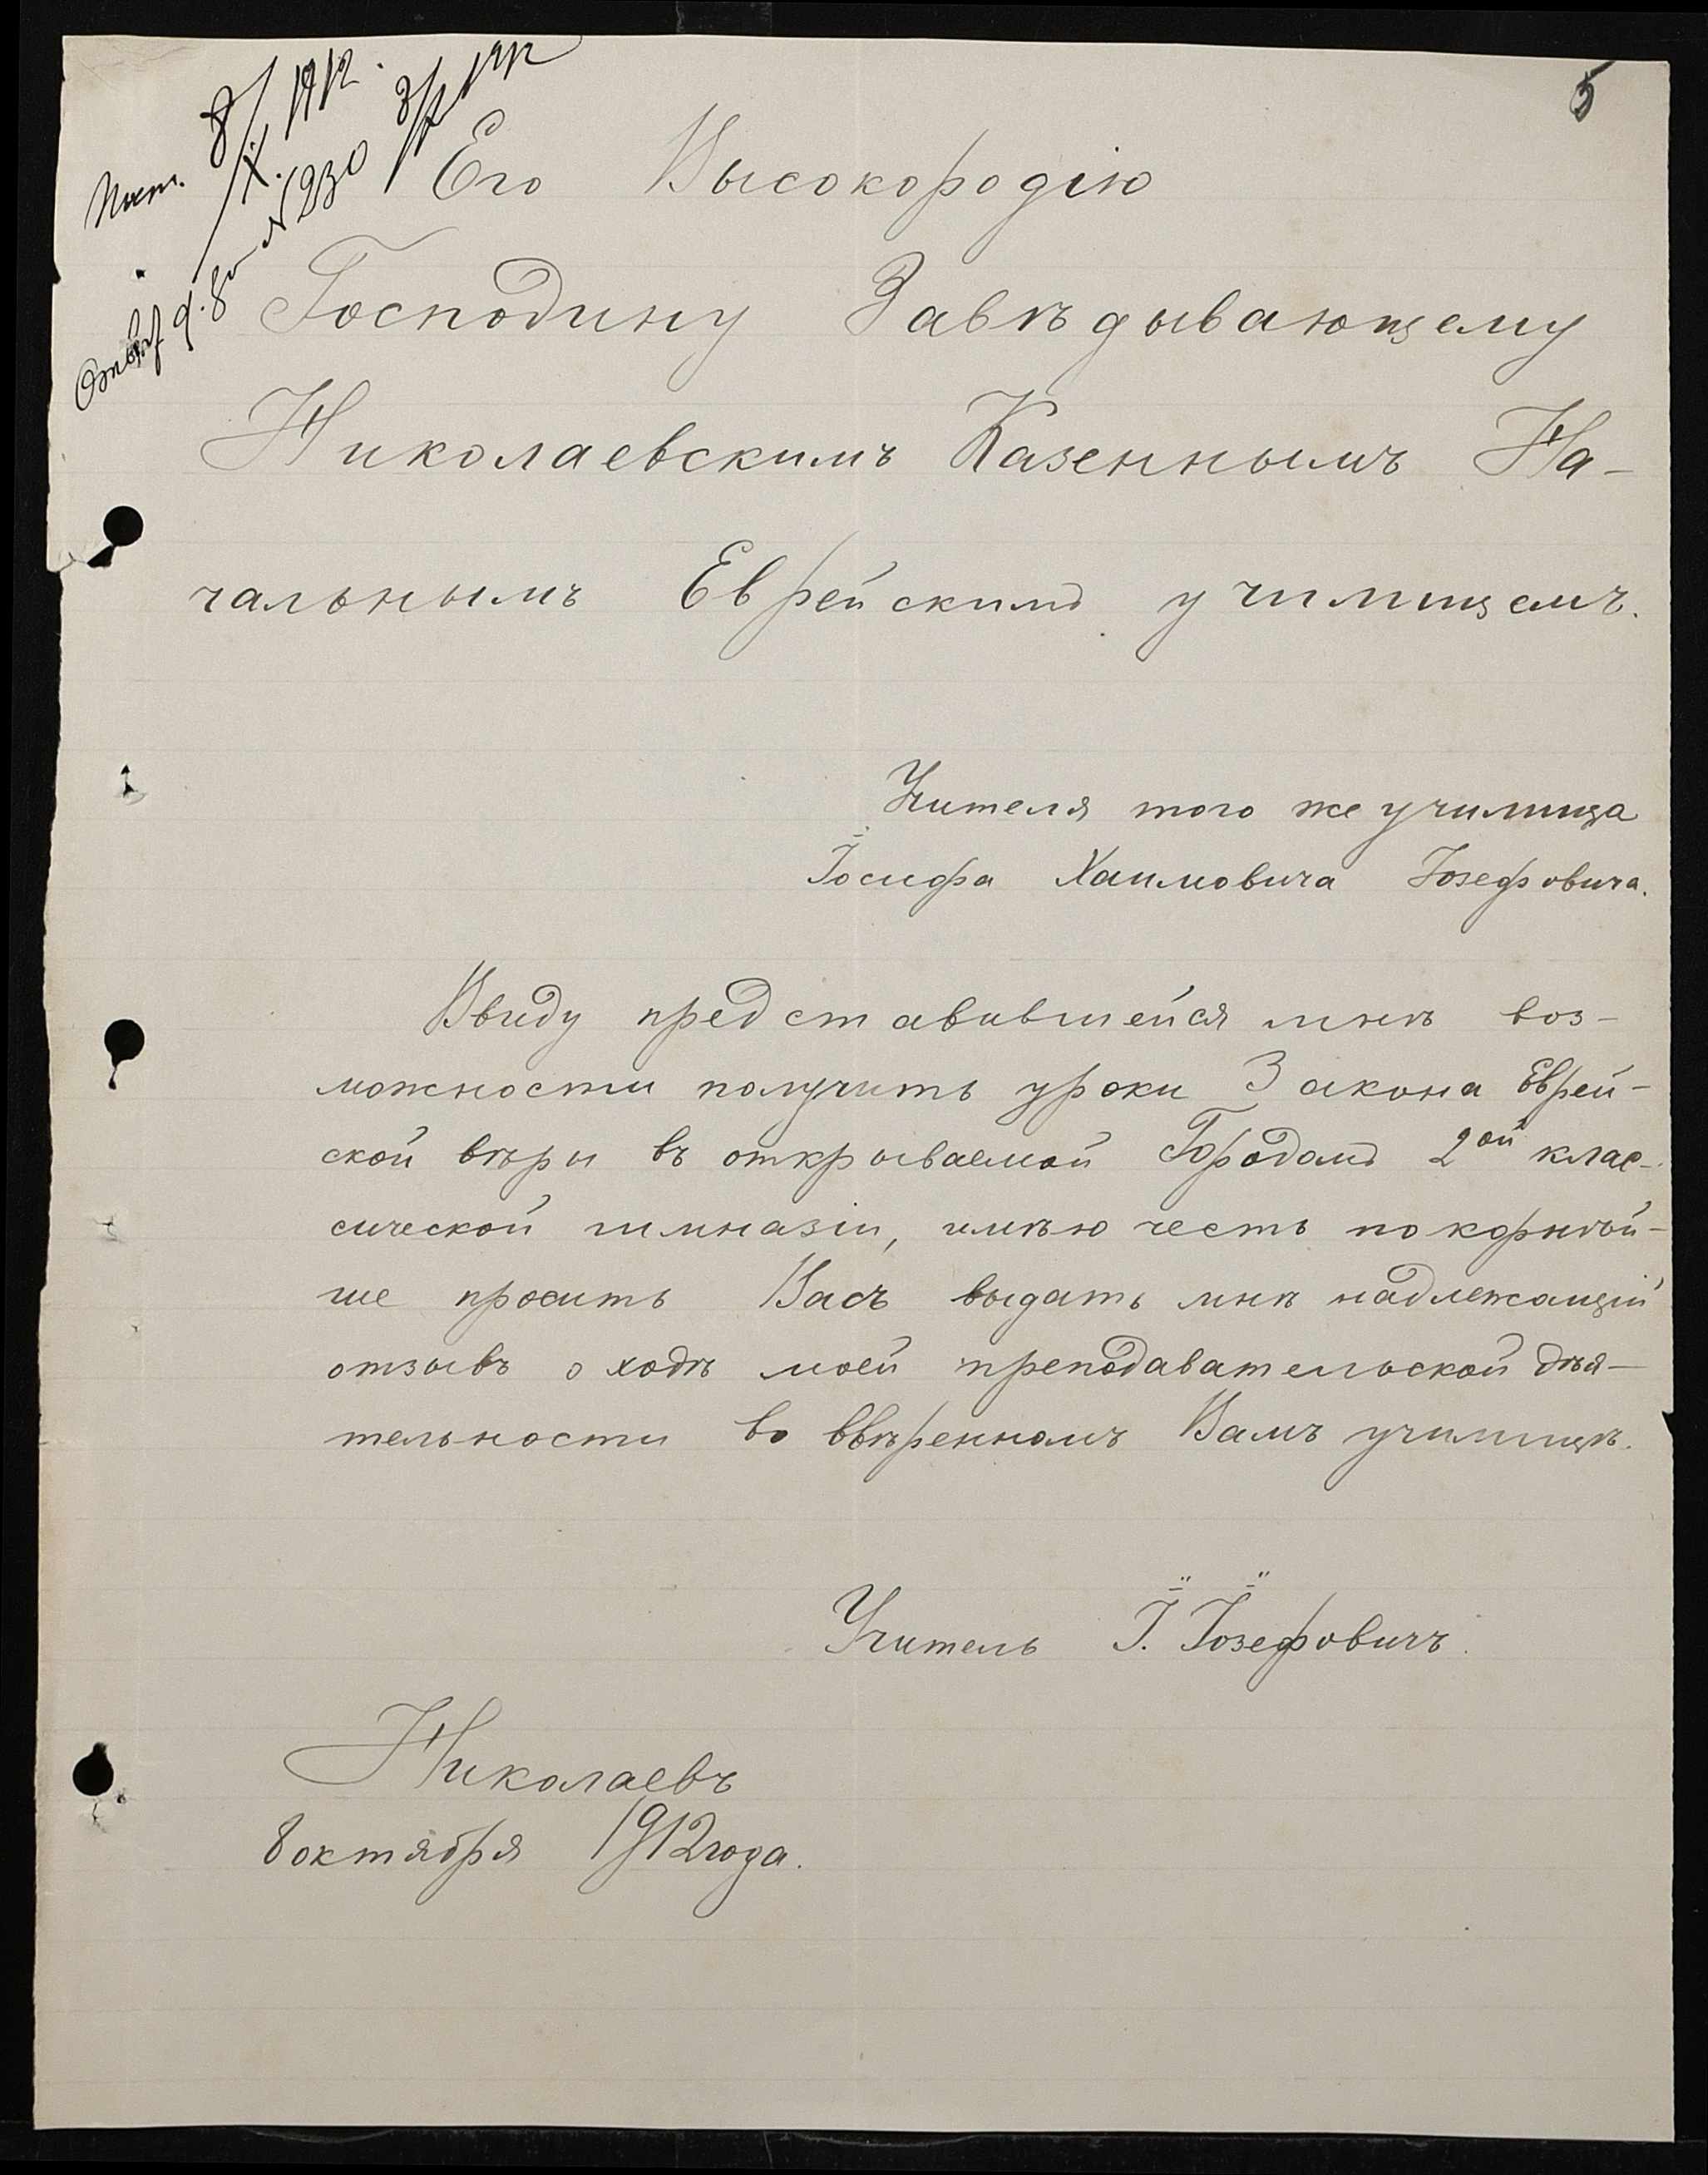 5
8/X. 1912.
№ 230
Его Высокородію
Господину Завѣдывающему
Николаевскимъ Казеннымъ На-
чальнымъ Еврейскимъ училищемъ.
Учителя того же училища
Іосифа Хаимовича Іозефовича.
Ввиду представившейся мнѣ воз-
можности получить уроки Закона Еврей-
ской вѣры въ открываемой Городомъ 2ой клас-
сической гимназіи, имѣю честь покорнѣй-
ше просить Васъ выдать мнѣ надлежащій
отзывъ о ходѣ моей преподавательской дѣя-
тельности во ввѣренномъ Вамъ училищѣ.
Учитель І. Іозефовичъ.
Николаевъ
8 октября 1912 года.